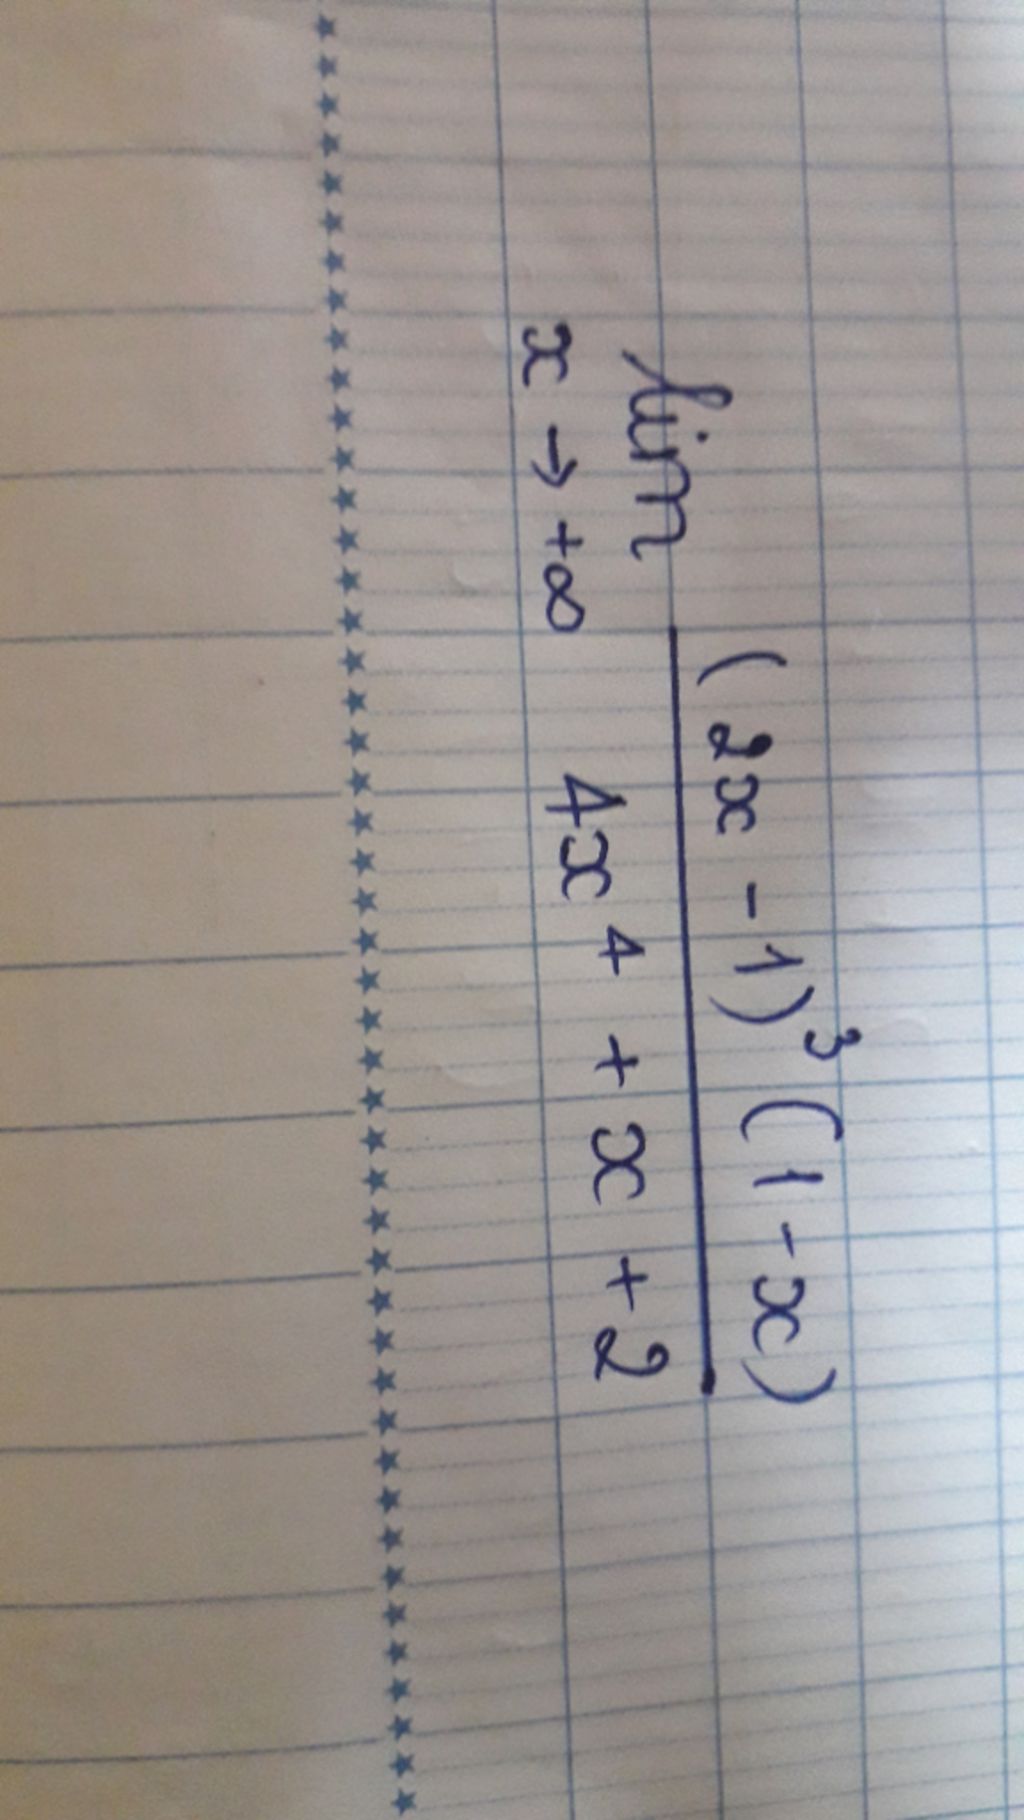 lim (2x - 1)³ (1 - x)
x → +∞ 4x⁴ + x + 2